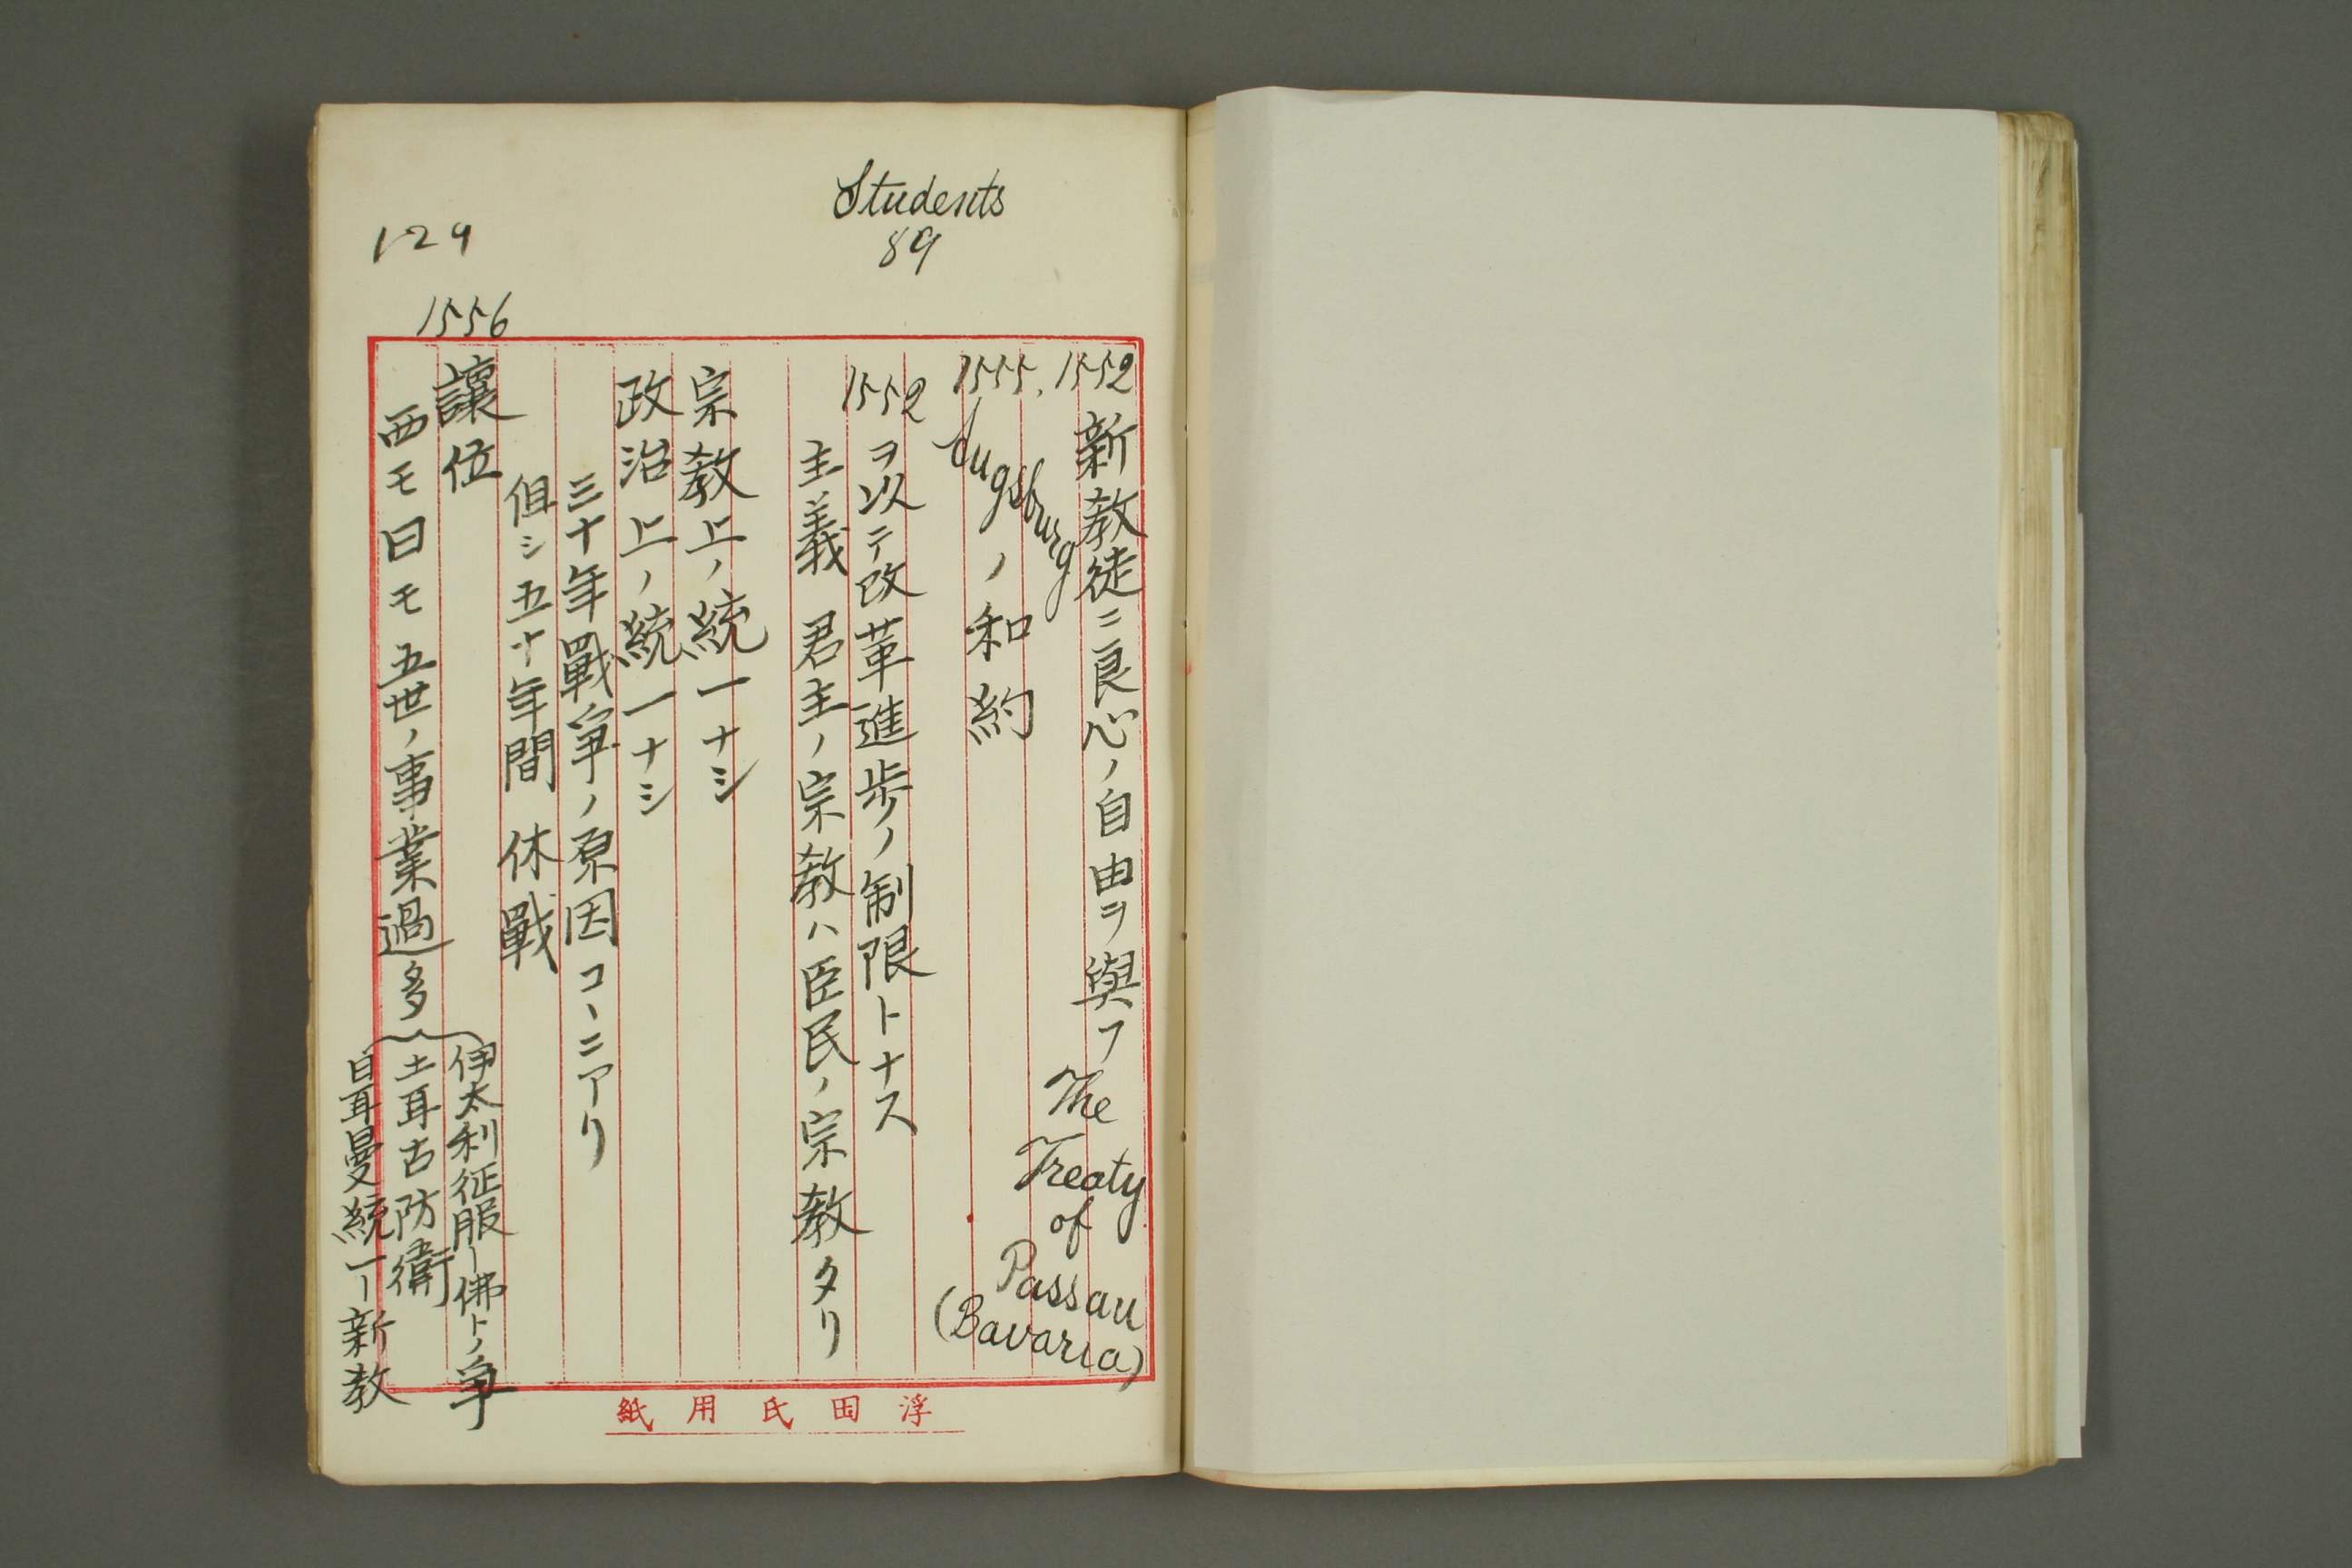 Students
89
129
1552 新教徒ニ良心ノ自由ヲ與フ The Treaty of Passau (Bavaria)
1555. Augsburg ノ和約
1552 ヲ以テ改革進歩ノ制限トナス
主義 君主ノ宗教ハ臣民ノ宗教タリ
宗教上ノ統一ナシ
政治上ノ統一ナシ
三十年戰爭ノ原因コヽニアリ
但シ五十年間 休戰
1556 讓位
西モ曰モ五世ノ事業過多
伊太利征服—佛トノ争
土耳古防衛
日耳曼統一—新教
浮田氏用紙